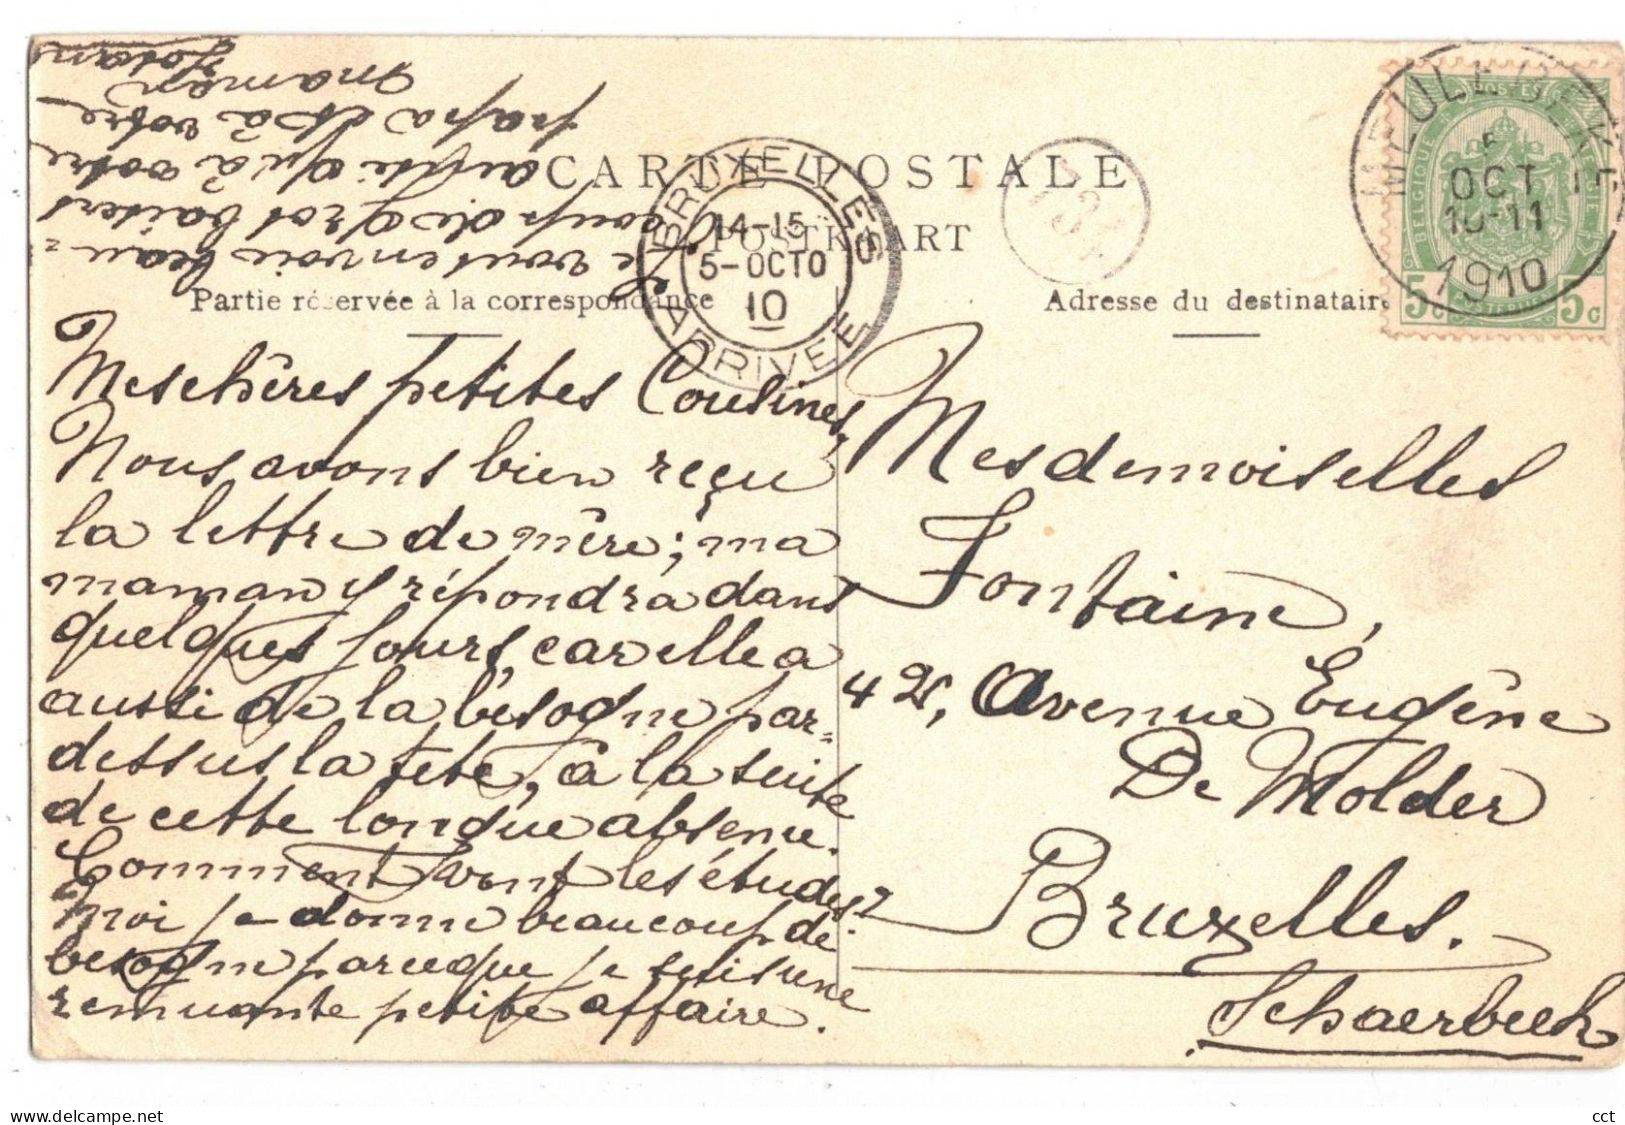 CARTE POSTALE
POSTKAART
Partie réservée à la correspondance
Adresse du destinataire
BRUXELLES
14-15
5-OCTO
10
ARRIVEE
MEULEBEKE
5
OCT
10-11
1910
BELGIQUE
POSTES
BELGIE
5c
5c
Mes chères petites Cousines,
Nous avons bien reçu
la lettre de mère; ma
maman y répondra dans
quelques jours, car elle a
aussi de la besogne par-
dessus la tête, à la suite
de cette longue absence.
Comment vont les études?
Moi je donne beaucoup de
besogne parceque je suis une
remuante petite affaire.
Je vous envoie beau-
coup de gros baisers
ainsi qu'à votre
papa et à votre
maman
Mesdemoiselles
Fontaine,
42, Avenue Eugène
De Molder
Bruxelles.
Schaerbeek
delcampe.net
cct